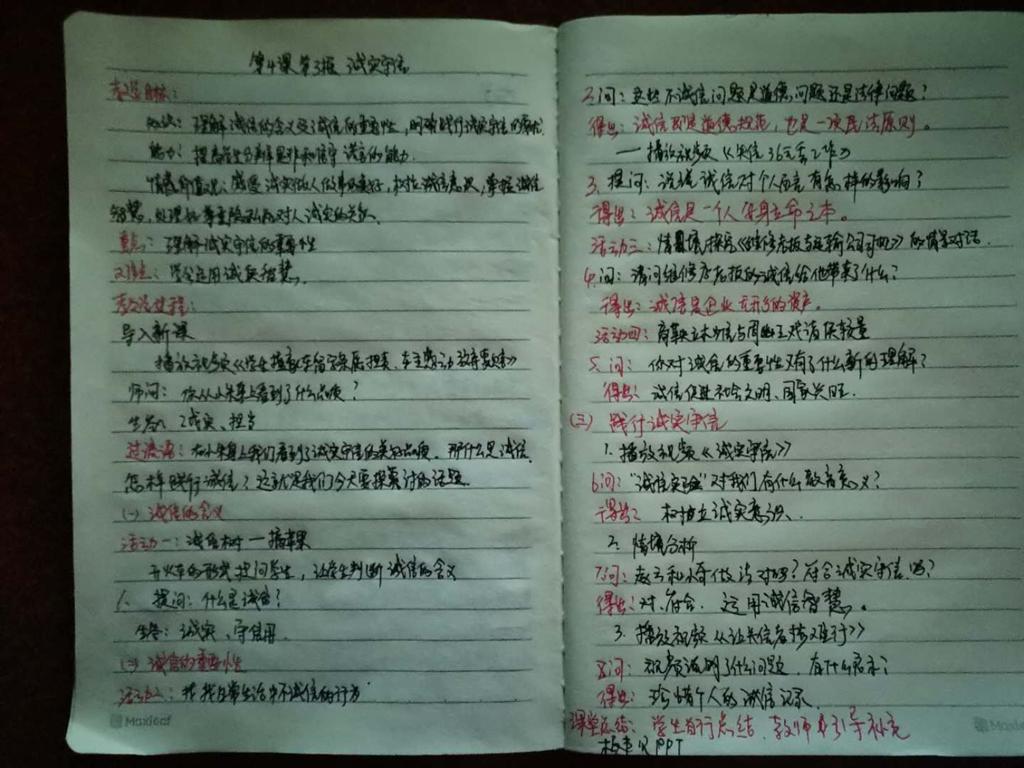 第4课第3框 诚实守信
教学目标:
知识: 理解诚信的含义及诚信的重要性,明确践行诚实守信的要求
能力: 提高学生分辨是非和信守诺言的能力.
情感价值观: 感悟诚实做人做事的美好,树立诚信意识,掌握诚信
智慧,处理好尊重隐私与对人诚实的关系.
重点: 理解诚实守信的重要性
难点: 学会运用诚信智慧.
教学过程:
导入新课
播放视频《学生撞豪车留字条愿担责,车主感动放弃索赔》
师问: 你从小朱身上看到了什么品质?
生答: 诚实、担当
过渡语: 在小朱身上我们看到了诚实守信的美好品质,那什么是诚信,
怎样践行诚信?这就是我们今天要探讨的话题.
(一) 诚信的含义
活动一: 诚信树—摘苹果
开火车的形式提问学生,让学生判断诚信的含义
1. 提问: 什么是诚信?
生答: 诚实、守信用.
(二) 诚信的重要性
活动二: 找找日常生活中不诚信的行为
Maxleaf
2.问: 这些不诚信问题是道德问题还是法律问题?
得出: 诚信既是道德规范,也是一项民法原则。
—播放视频《失信36元丢工作》
3. 提问: 说说诚信对个人而言有怎样的影响?
得出: 诚信是一个人安身立命之本。
活动三: 情景 《维修老板与运输公司司机》的情景对话.
4.问: 请问维修店老板的诚信给他带来了什么?
得出: 诚信是企业无形的资产。
活动四: 商鞅立木为信与周幽王戏诸侯较量
5.问: 你对诚信的重要性又有了什么新的理解?
得出: 诚信促进社会文明、国家兴旺.
(三) 践行诚实守信
1. 播放视频《诚实守信》
6问: “诚信实验”对我们有什么教育意义?
得出: 树立诚实意识、
2. 情境分析
7.问: 做法对吗?符合诚实守信吗?
得出: 对、符合. 运用诚信智慧。
3. 播放视频《让失信者寸步难行》
8问: 视频说明了什么问题,有什么启示?
得出: 珍惜个人的诚信记录.
课堂总结: 学生自行总结,教师引导补充
板书见PPT
Maxleaf